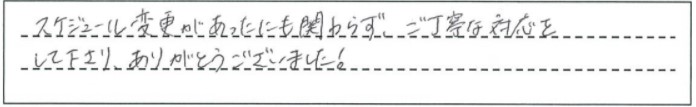 スケジュール変更があったにも関わらず、ご丁寧な対応を
して下さり、ありがとうございました！